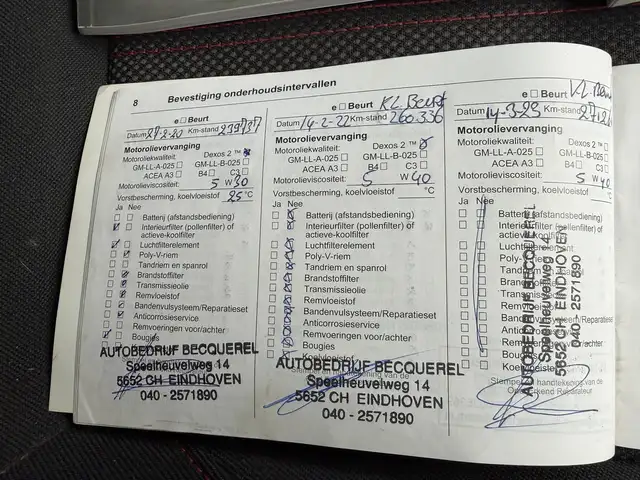 8 Bevestiging onderhoudsintervallen
e □ Beurt
Datum 27-2-20 Km-stand 239737
Motorolievervanging
Motoroliekwaliteit: Dexos 2 ™
GM-LL-A-025 □ GM-LL-B-025 □
ACEA A3 □ B4 □ C3 □
Motorolieviscositeit: 5 W 30
Vorstbescherming, koelvloeistof 25 °C
Ja Nee
Batterij (afstandsbediening)
Interieurfilter (pollenfilter) of
actieve-koolfilter
Luchtfilterelement
Poly-V-riem
Tandriem en spanrol
Brandstoffilter
Transmissieolie
Remvloeistof
Bandenvulsysteem/Reparatieset
Anticorrosieservice
Remvoeringen voor/achter
Bougies
AUTOBEDRIJF BECQUEREL
Speelheuvelweg 14
5652 CH EINDHOVEN
040 - 2571890
e □ Beurt KL. Beurt
Datum 14-2-22 Km-stand 260.336
Motorolievervanging
Motoroliekwaliteit: Dexos 2 ™
GM-LL-A-025 □ GM-LL-B-025 □
ACEA A3 □ B4 □ C3 □
Motorolieviscositeit: 5 W 40
Vorstbescherming, koelvloeistof °C
Ja Nee
Batterij (afstandsbediening)
Interieurfilter (pollenfilter) of
actieve-koolfilter
Luchtfilterelement
Poly-V-riem
Tandriem en spanrol
Brandstoffilter
Transmissieolie
Remvloeistof
Bandenvulsysteem/Reparatieset
Anticorrosieservice
Remvoeringen voor/achter
Bougies
Koelvloeistof
AUTOBEDRIJF BECQUEREL
Speelheuvelweg 14
5652 CH EINDHOVEN
040 - 2571890
e □ Beurt KL.
Datum 14-3-23 Km-stand
Motorolievervanging
Motoroliekwaliteit: Dexos 2 ™ □
GM-LL-A-025 □ GM-LL-B-025 □
ACEA A3 □ B4 □ C3 □
Motorolieviscositeit: 5 W 40
Vorstbescherming, koelvloeistof °C
Ja Nee
Batterij (afstandsbediening)
Interieurfilter (pollenfilter) of
actieve-koolfilter
Luchtfilterelement
Poly-V-riem
Tandriem en spanrol
Brandstoffilter
Transmissieolie
Remvloeistof
Bandenvulsysteem/Reparatieset
Remvoeringen voor/achter
Koelvloeistof
Stempel en handtekening van de
Opel Erkend Reparateur
AUTOBEDRIJF BECQUEREL
Speelheuvelweg 14
5652 CH EINDHOVEN
040 - 2571890